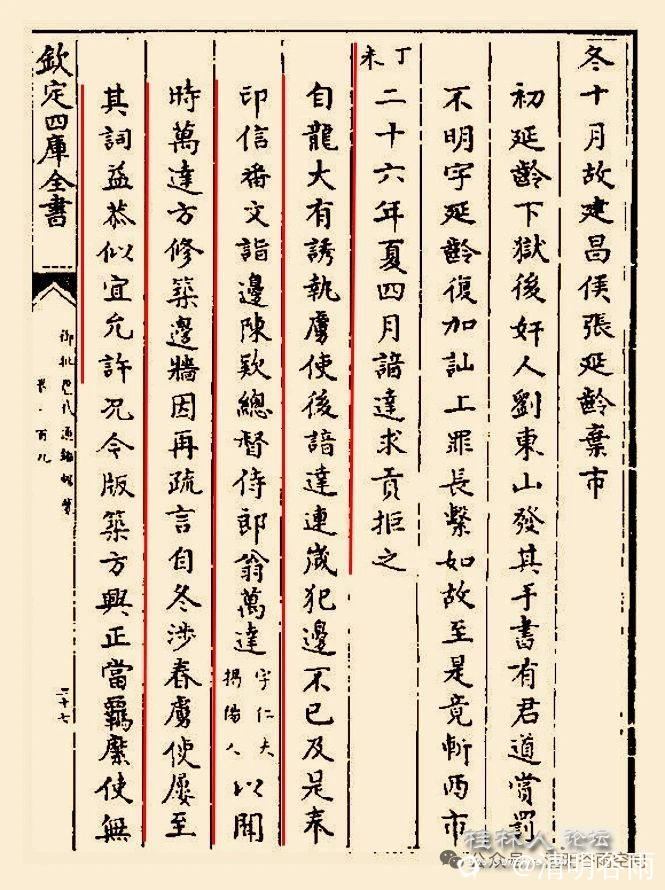 冬十月故建昌侯張延齡棄市
初延齡下獄後奸人劉東山發其手書有君道賞罰
不明字延齡復加訕上罪長繫如故至是竟斬西市
丁未二十六年夏四月諳達求貢拒之
自龍大有誘執虜使後諳達連歲犯邊不已及是奉
印信番文詣邊陳欵總督侍郎翁萬達字仁夫揭陽人以聞
時萬達方修築邊牆因再疏言自冬涉春虜使屢至
其詞益恭似宜允許况令版築方興正當羈縻使無
欽定四庫全書
御批歷代通鑑輯覽
卷一百九
三十七
桂林人论坛
公众号
@清明谷雨